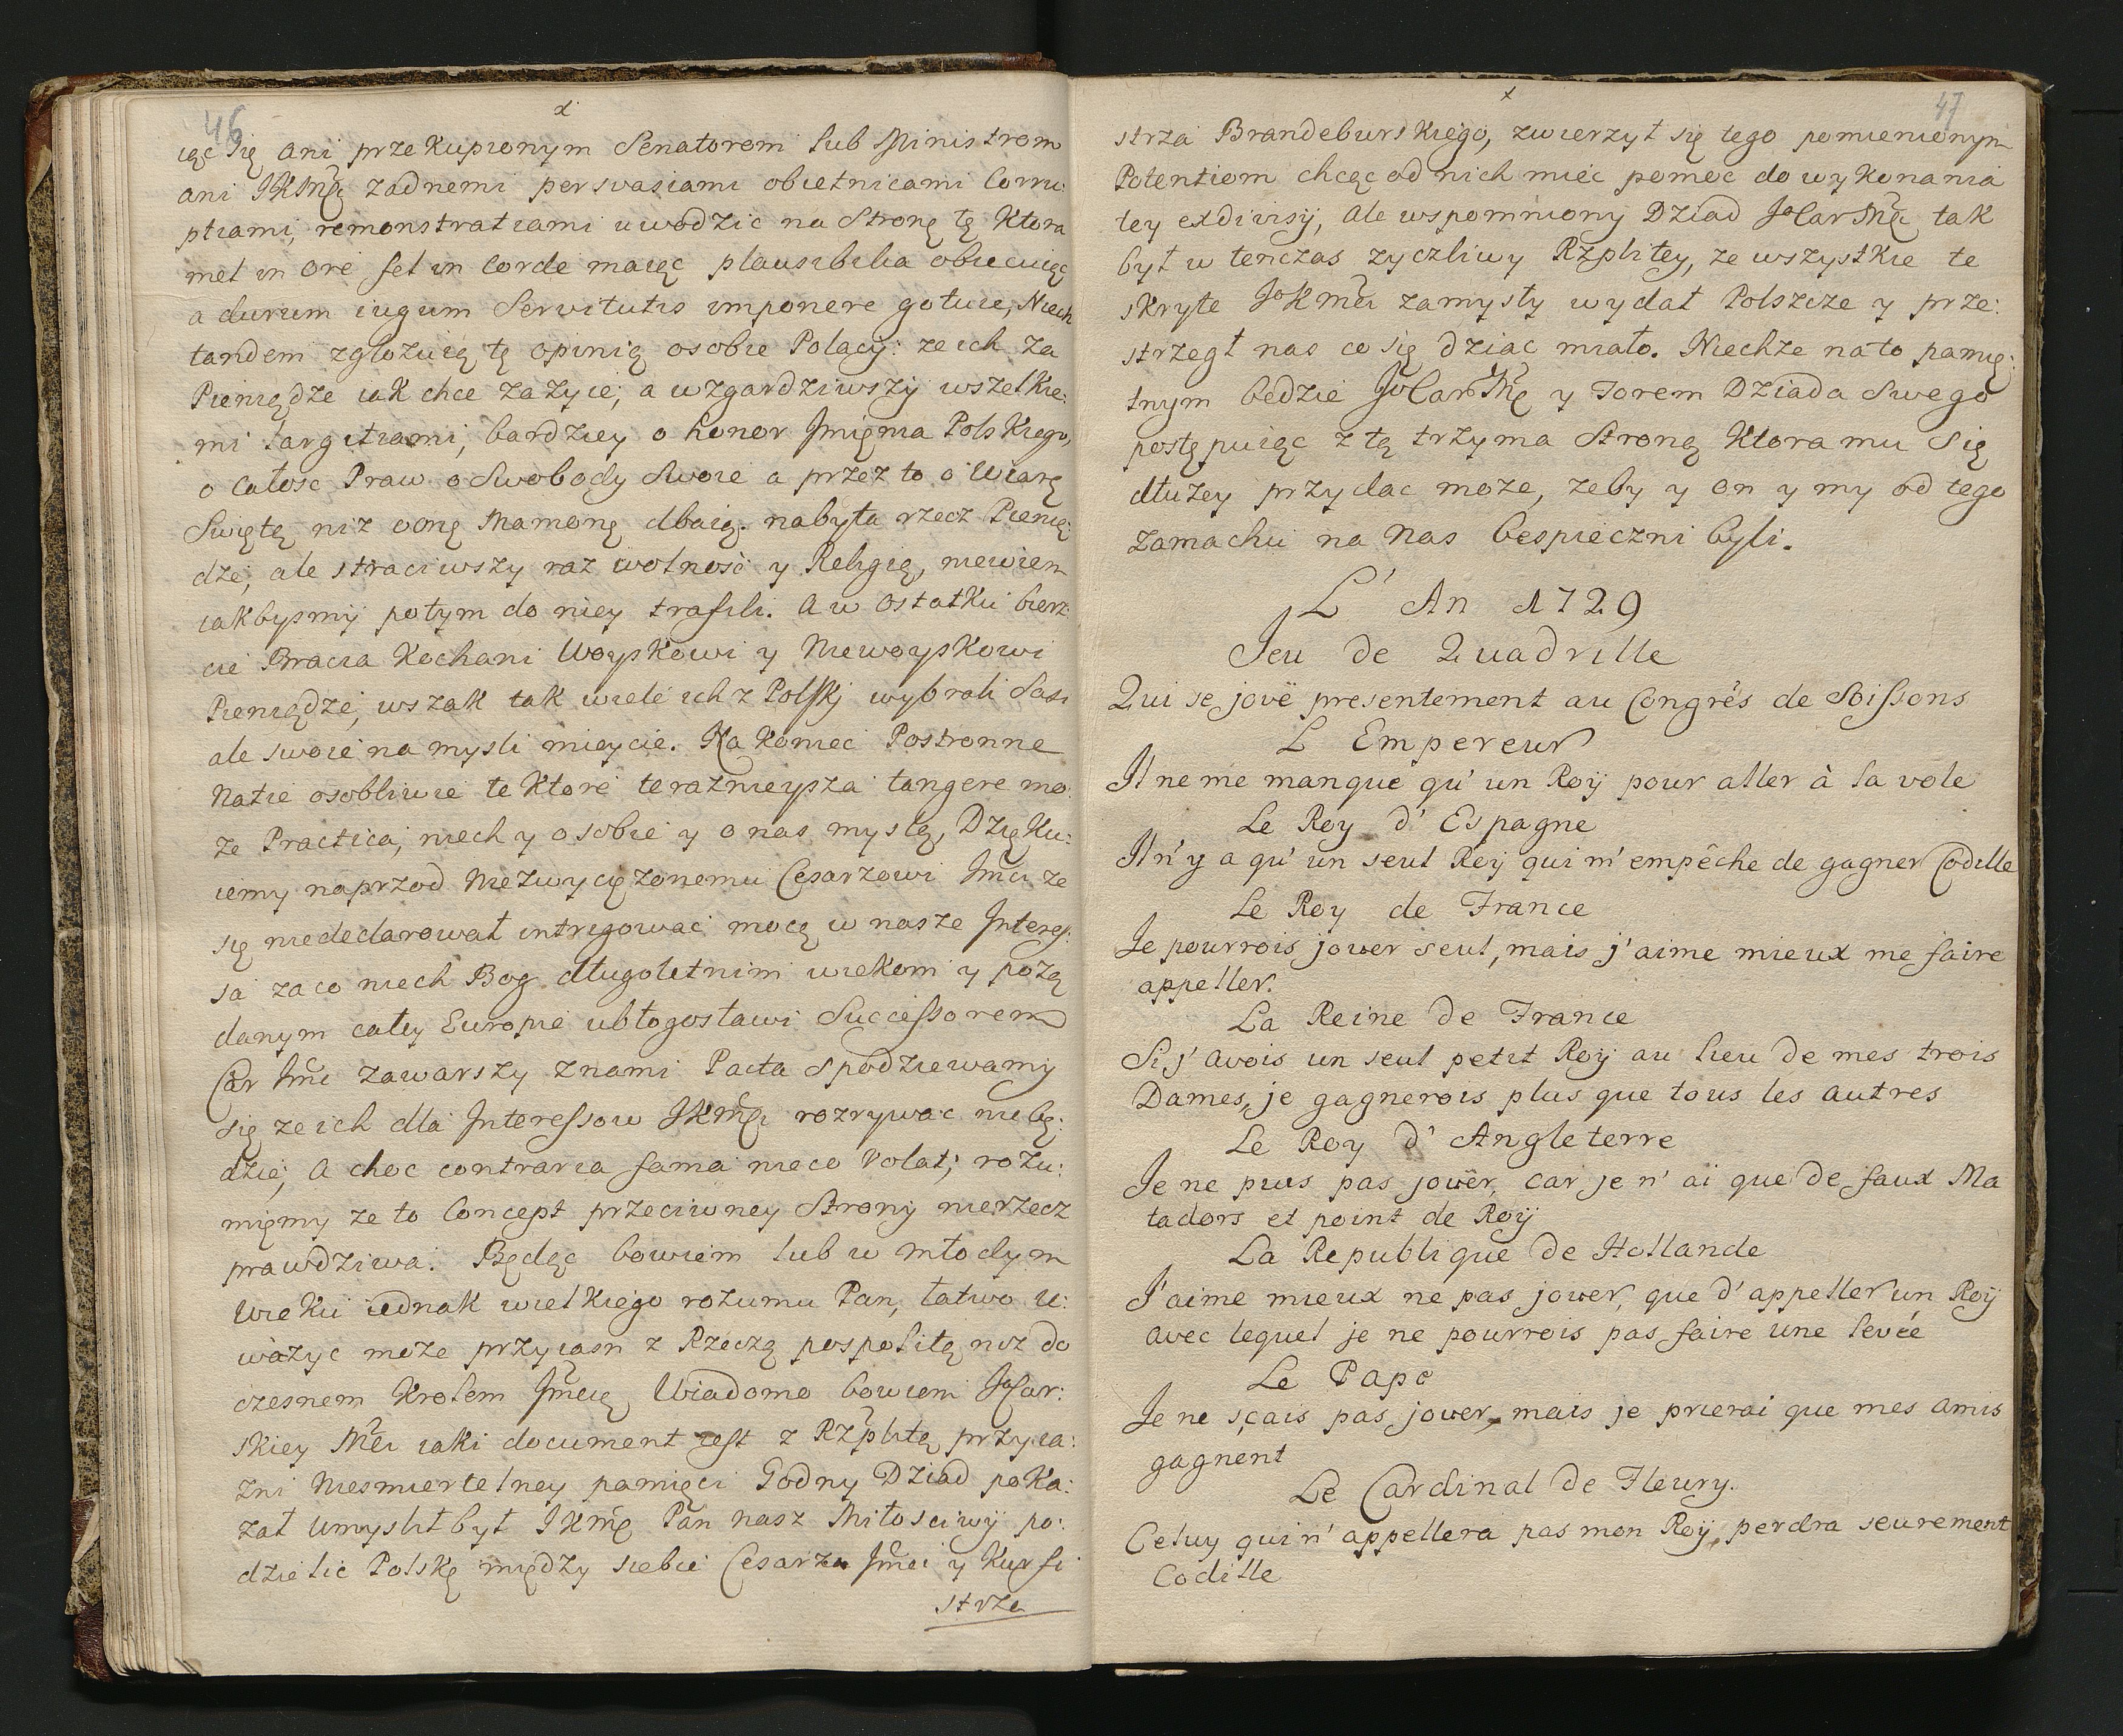 46
x
iąc się ani przekupionym Senatorom lub Ministrom
ani JKMci zadnemi perswasiami obietnicami Corru:
ptiami, remonstratiami uwodzic na Stronę tę Ktora
mel in ore fel in Corde maiąc plausibilia obiecuiąc
a durum iugum Servitutis imponere gotuie, Niech
tandem zgłozuią tę opinią o sobie Polacy: ze ich za
Pieniądze iak chce zazyie, a wzgardziwszy wszelkie:
mi largitiami, bardziey o honor Jmięnia Polskiego,
o Całosc Praw o Swobody Swoie a przez to o Wiarę
Swiętą niz oonę Mamonę dbaią. nabyta rzecz Pienią:
dze, ale straciwszy raz wolność y Religią, niewiem
iakbysmy potym do niey trafili. A w Ostatku bierz:
cie Bracia Kochani Woyskowi y Niewoyskowi
Pieniądze, wszak tak wiele ich z Polski wybrali Sasi
ale swoie na mysli mieycie. Na Koniec Postronne
Natie osobliwie te Ktore teraznieysza tangere mo:
ze Practica, niech y o sobie y o nas myslą, Dzięku:
iemy naprzod Niezwycięzonemu Cesarzowi Jmci ze
się niedeclarował intrigować mocą w nasze Interes:
sa za co niech Bog długoletnim wiekom y pożą
danym całey Europie ubłogosławi Successorem
Car Jmc zawarszy znami Pacta spodziewamy
się ze ich dla Interessow JKMci rozrywac niebę:
dzie, A choc contraria fama nieco Volat, rozu:
mięmy ze to Concept przeciwney Strony nierzecz
prawdziwa. Będąc bowiem lub w młodym
Wieku iednak wielkiego rozumu Pan, łatwo u:
ważyc moze przyiasn z Rzeczą pospolitą niz do
czesnem Krolem Jmcią Wiadomo bowiem JoCar:
skiey Mci iaki document iest z Rzplitą przyia:
zni Niesmiertelney pamięci Godny Dziad poka:
zał Umyslił był JKMc Pan nasz Miłosciwy po:
dzielic Polskę między siebie Cesarza Jmci y Kurfi
strza
47
x
strza Brandeburskiego, zwierzył się tego pomienionym
Potentiom chcąc od nich mieć pomoc do wykonania
tey exdivisij, ale wspomniony Dziad JoCarMci tak
był w tenczas zyczliwy Rzplitey, ze wszystkie te
skryte JoKmci zamysły wydał Polszcze y prze:
strzegł nas co się dziac miało. Niechze na to pamię:
tnym będzie JoCarMc y Torem Dziada Swego
postępuiąc z tą trzyma Stroną Ktora mu się
dłuzey przydac moze, zeby y on y my od tego
zamachu na Nas bespieczni byli.
L' An 1729
Jeu de Quadrille
Qui se jouë presentement au Congrês de Soissons
L Empereur
Il ne me manque qu' un Roÿ pour aller à la vole
Le Roy d' Espagne
Il n' y a qu' un seul Roÿ qui m' empêche de gagner Codille
Le Roy de France
Je pourrois jouer seul, mais j' aime mieux me faire
appeller.
La Reine de France
Si j' avois un seul petit Roÿ au lieu de mes trois
Dames, je gagnerois plus que tous les autres
Le Roy d' Angleterre
Je ne puis pas jouër, car je n' ai que de faux Ma
tadors et point de Roÿ
La Republique de Hollande
J' aime mieux ne pas jouer, que d' appeller un Roÿ
avec lequel je ne pourrois pas faire une levée
Le Pape
Je ne sçais pas jouer, mais je prierai que mes amis
gagnent
Le Cardinal de Fleury.
Celuy qui n' appellera pas mon Roÿ, perdra seurement
Codille